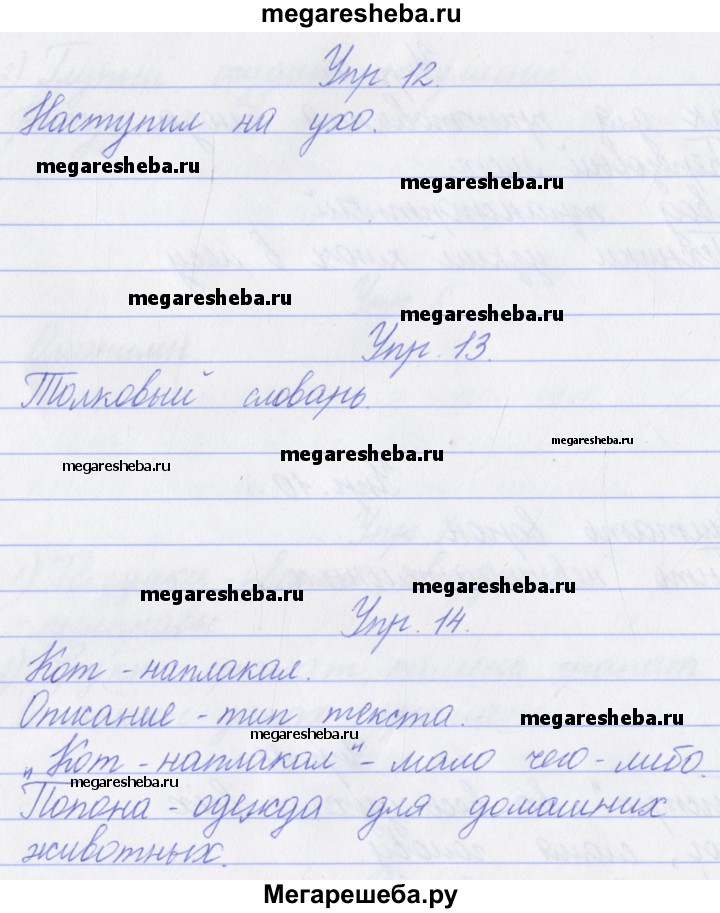 megaresheba.ru
Упр. 12.
Наступил на ухо.
megaresheba.ru
megaresheba.ru
megaresheba.ru
megaresheba.ru
Упр. 13.
Толковый словарь.
megaresheba.ru
megaresheba.ru
megaresheba.ru
megaresheba.ru
megaresheba.ru
Упр. 14.
Кот - наплакал.
Описание - тип текста.
megaresheba.ru
megaresheba.ru
„Кот - наплакал“ - мало чего - либо.
megaresheba.ru
Попона - одежда для домашних
животных.
Мегарешеба.ру